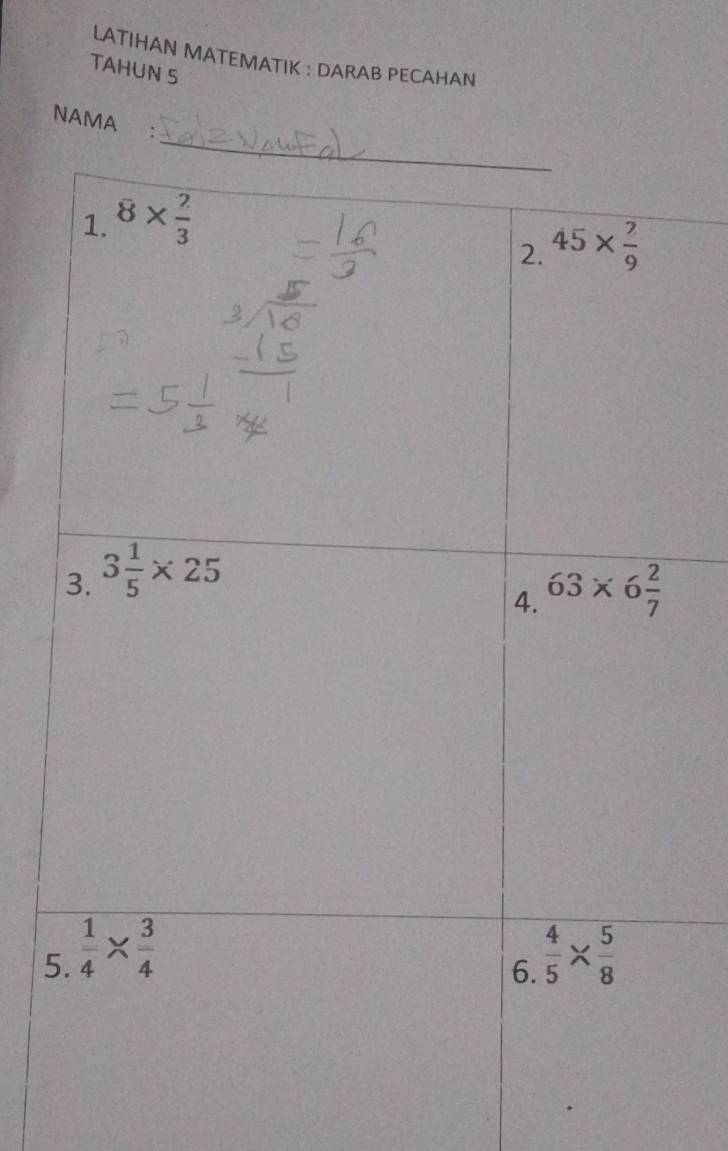 LATIHAN MATEMATIK : DARAB PECAHAN
TAHUN 5
NAMA : Faiz Naufal
1. 8 × 2/3 = 16/3
5
3 √16
-15
1
= 5 1/3
2. 45 × 2/9
3. 3 1/5 × 25
4. 63 × 6 2/7
5. 1/4 × 3/4
6. 4/5 × 5/8